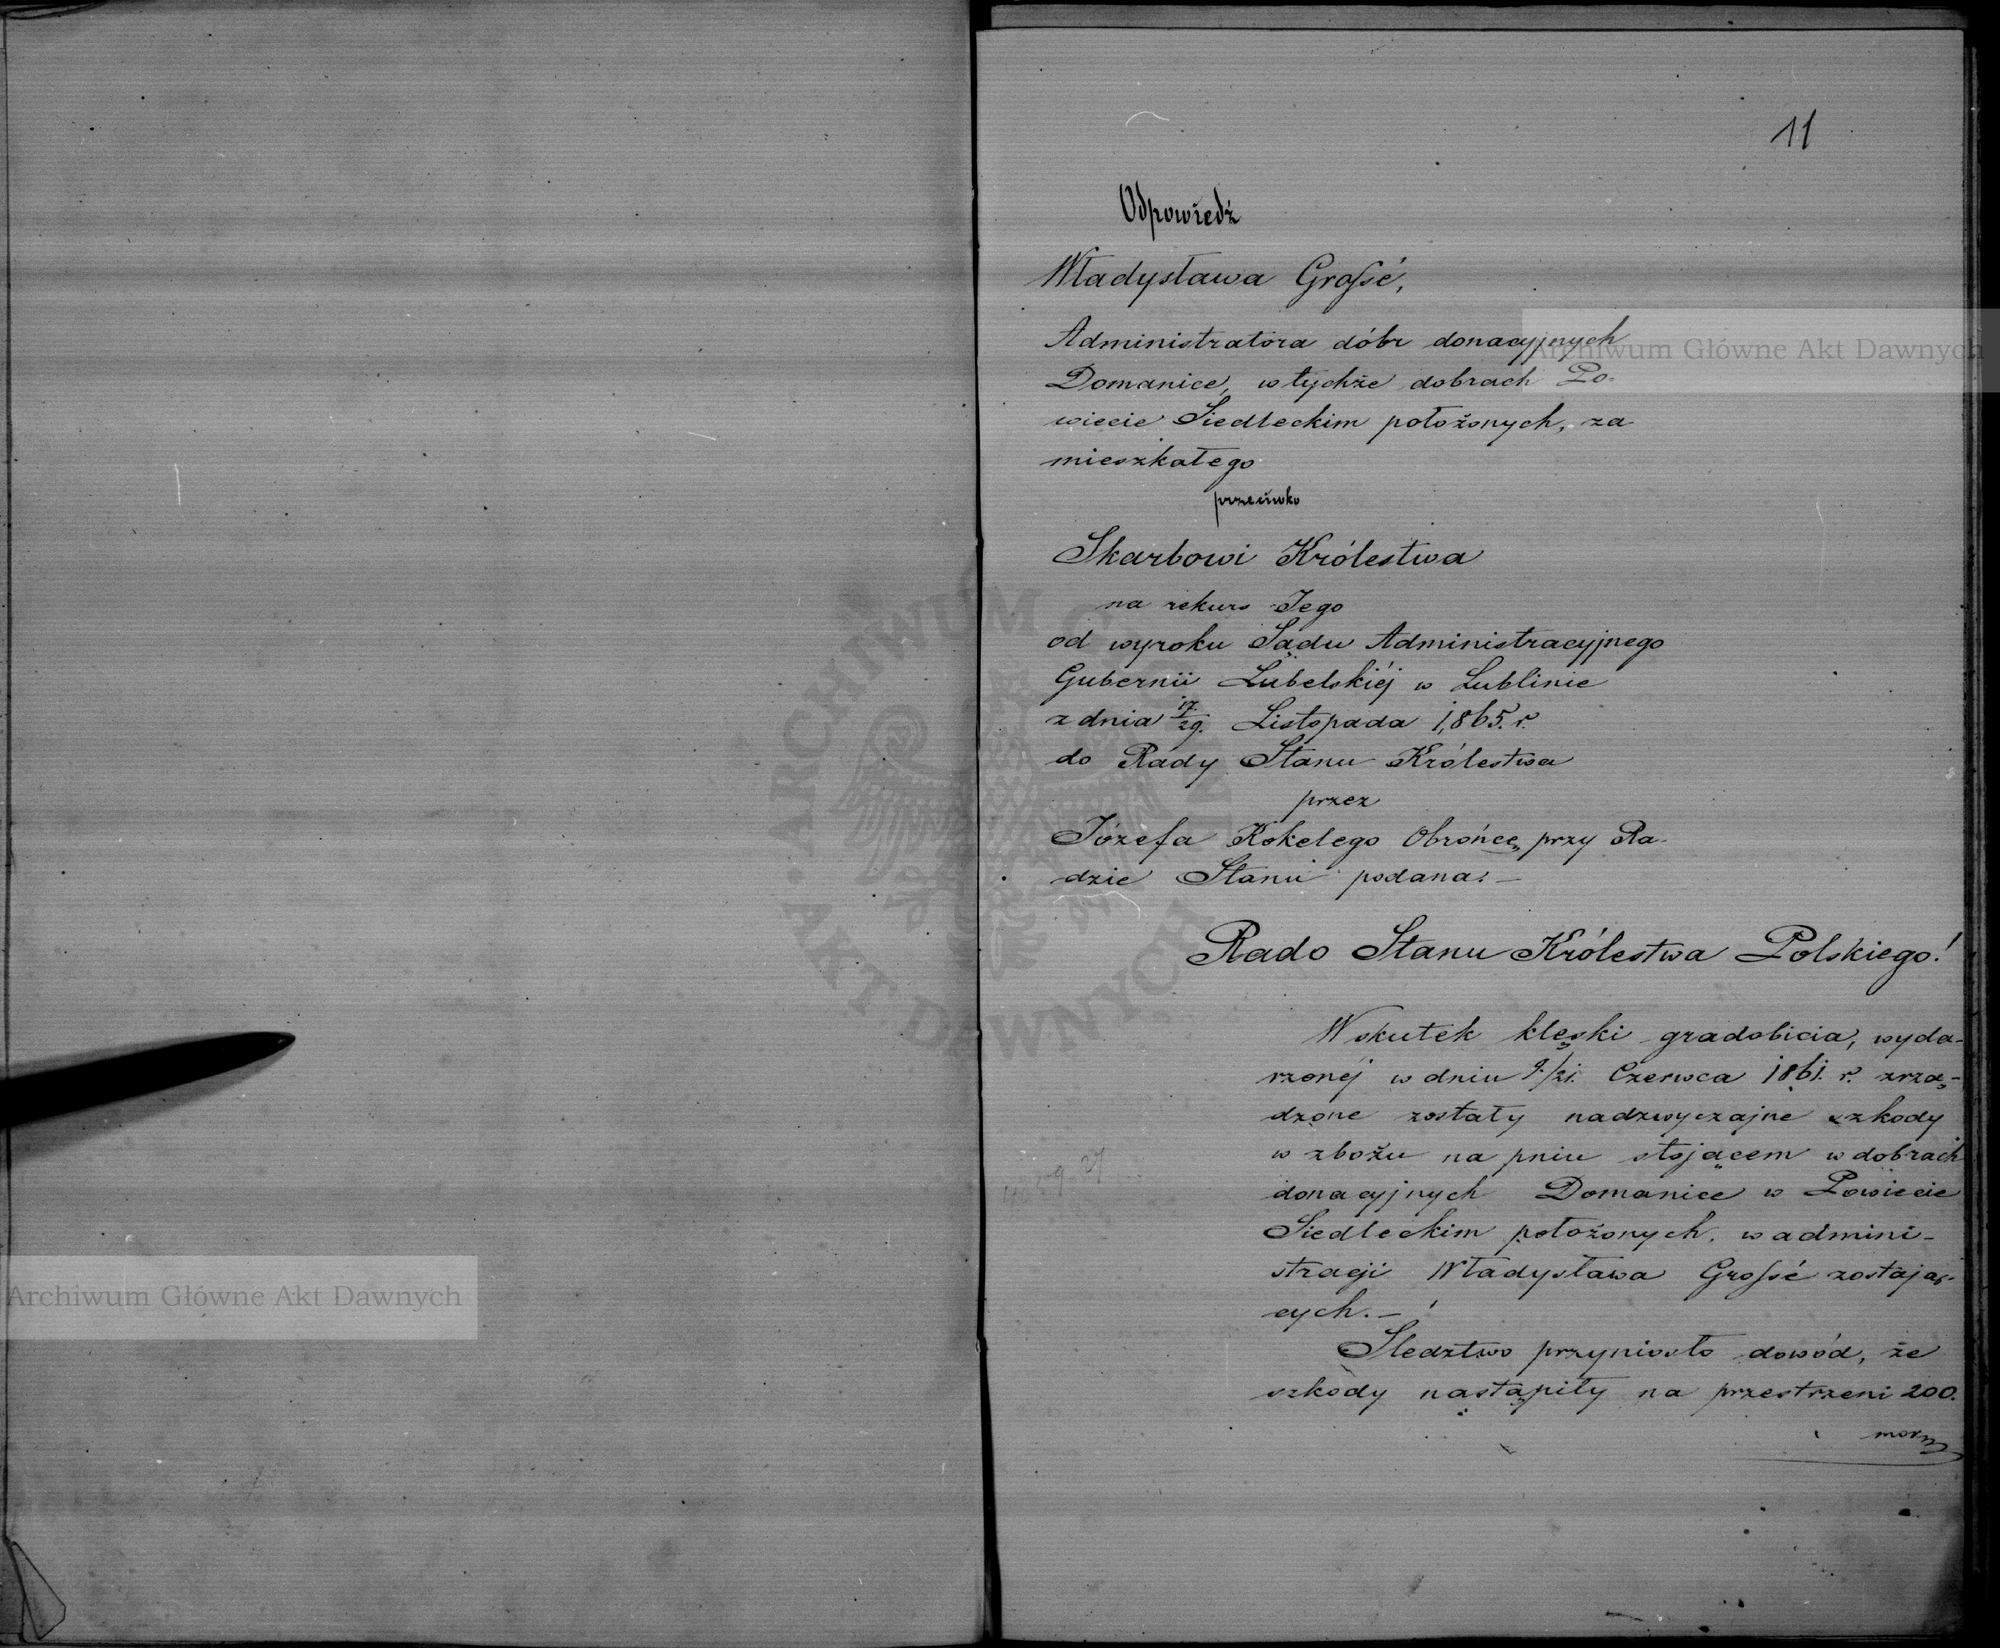 11
Odpowiedź
Władysława Grossé,
Administratora dóbr donacyjnych
Domanice, w tychże dobrach Po-
wiecie Siedleckim położonych, za
mieszkałego
przeciwko
Skarbowi Królestwa
na rekurs Jego
od wyroku Sądu Administracyjnego
Gubernii Lubelskiéj w Lublinie
z dnia 17/29. Listopada 1,865. r.
do Rady Stanu Królestwa
przez
Józefa Kokelego Obrońcę przy Ra-
dzie Stanu podana. —
Rado Stanu Królestwa Polskiego!
Wskutek klęski gradobicia, wyda-
rzonéj w dniu 9./21. Czerwca 1861. r. zrzą-
dzone zostały nadzwyczajne szkody
w zbożu na pniu stojącem w dobrach
donacyjnych Domanice w Powiecie
Siedleckim położonych, w admini-
stracji Władysława Grossé zostają-
cych. —
Śledztwo przyniosło dowód, że
szkody nastąpiły na przestrzeni 200.
morg
Archiwum Główne Akt Dawnych
Archiwum Główne Akt Dawnych
ARCHIWUM
AKT DAWNYCH